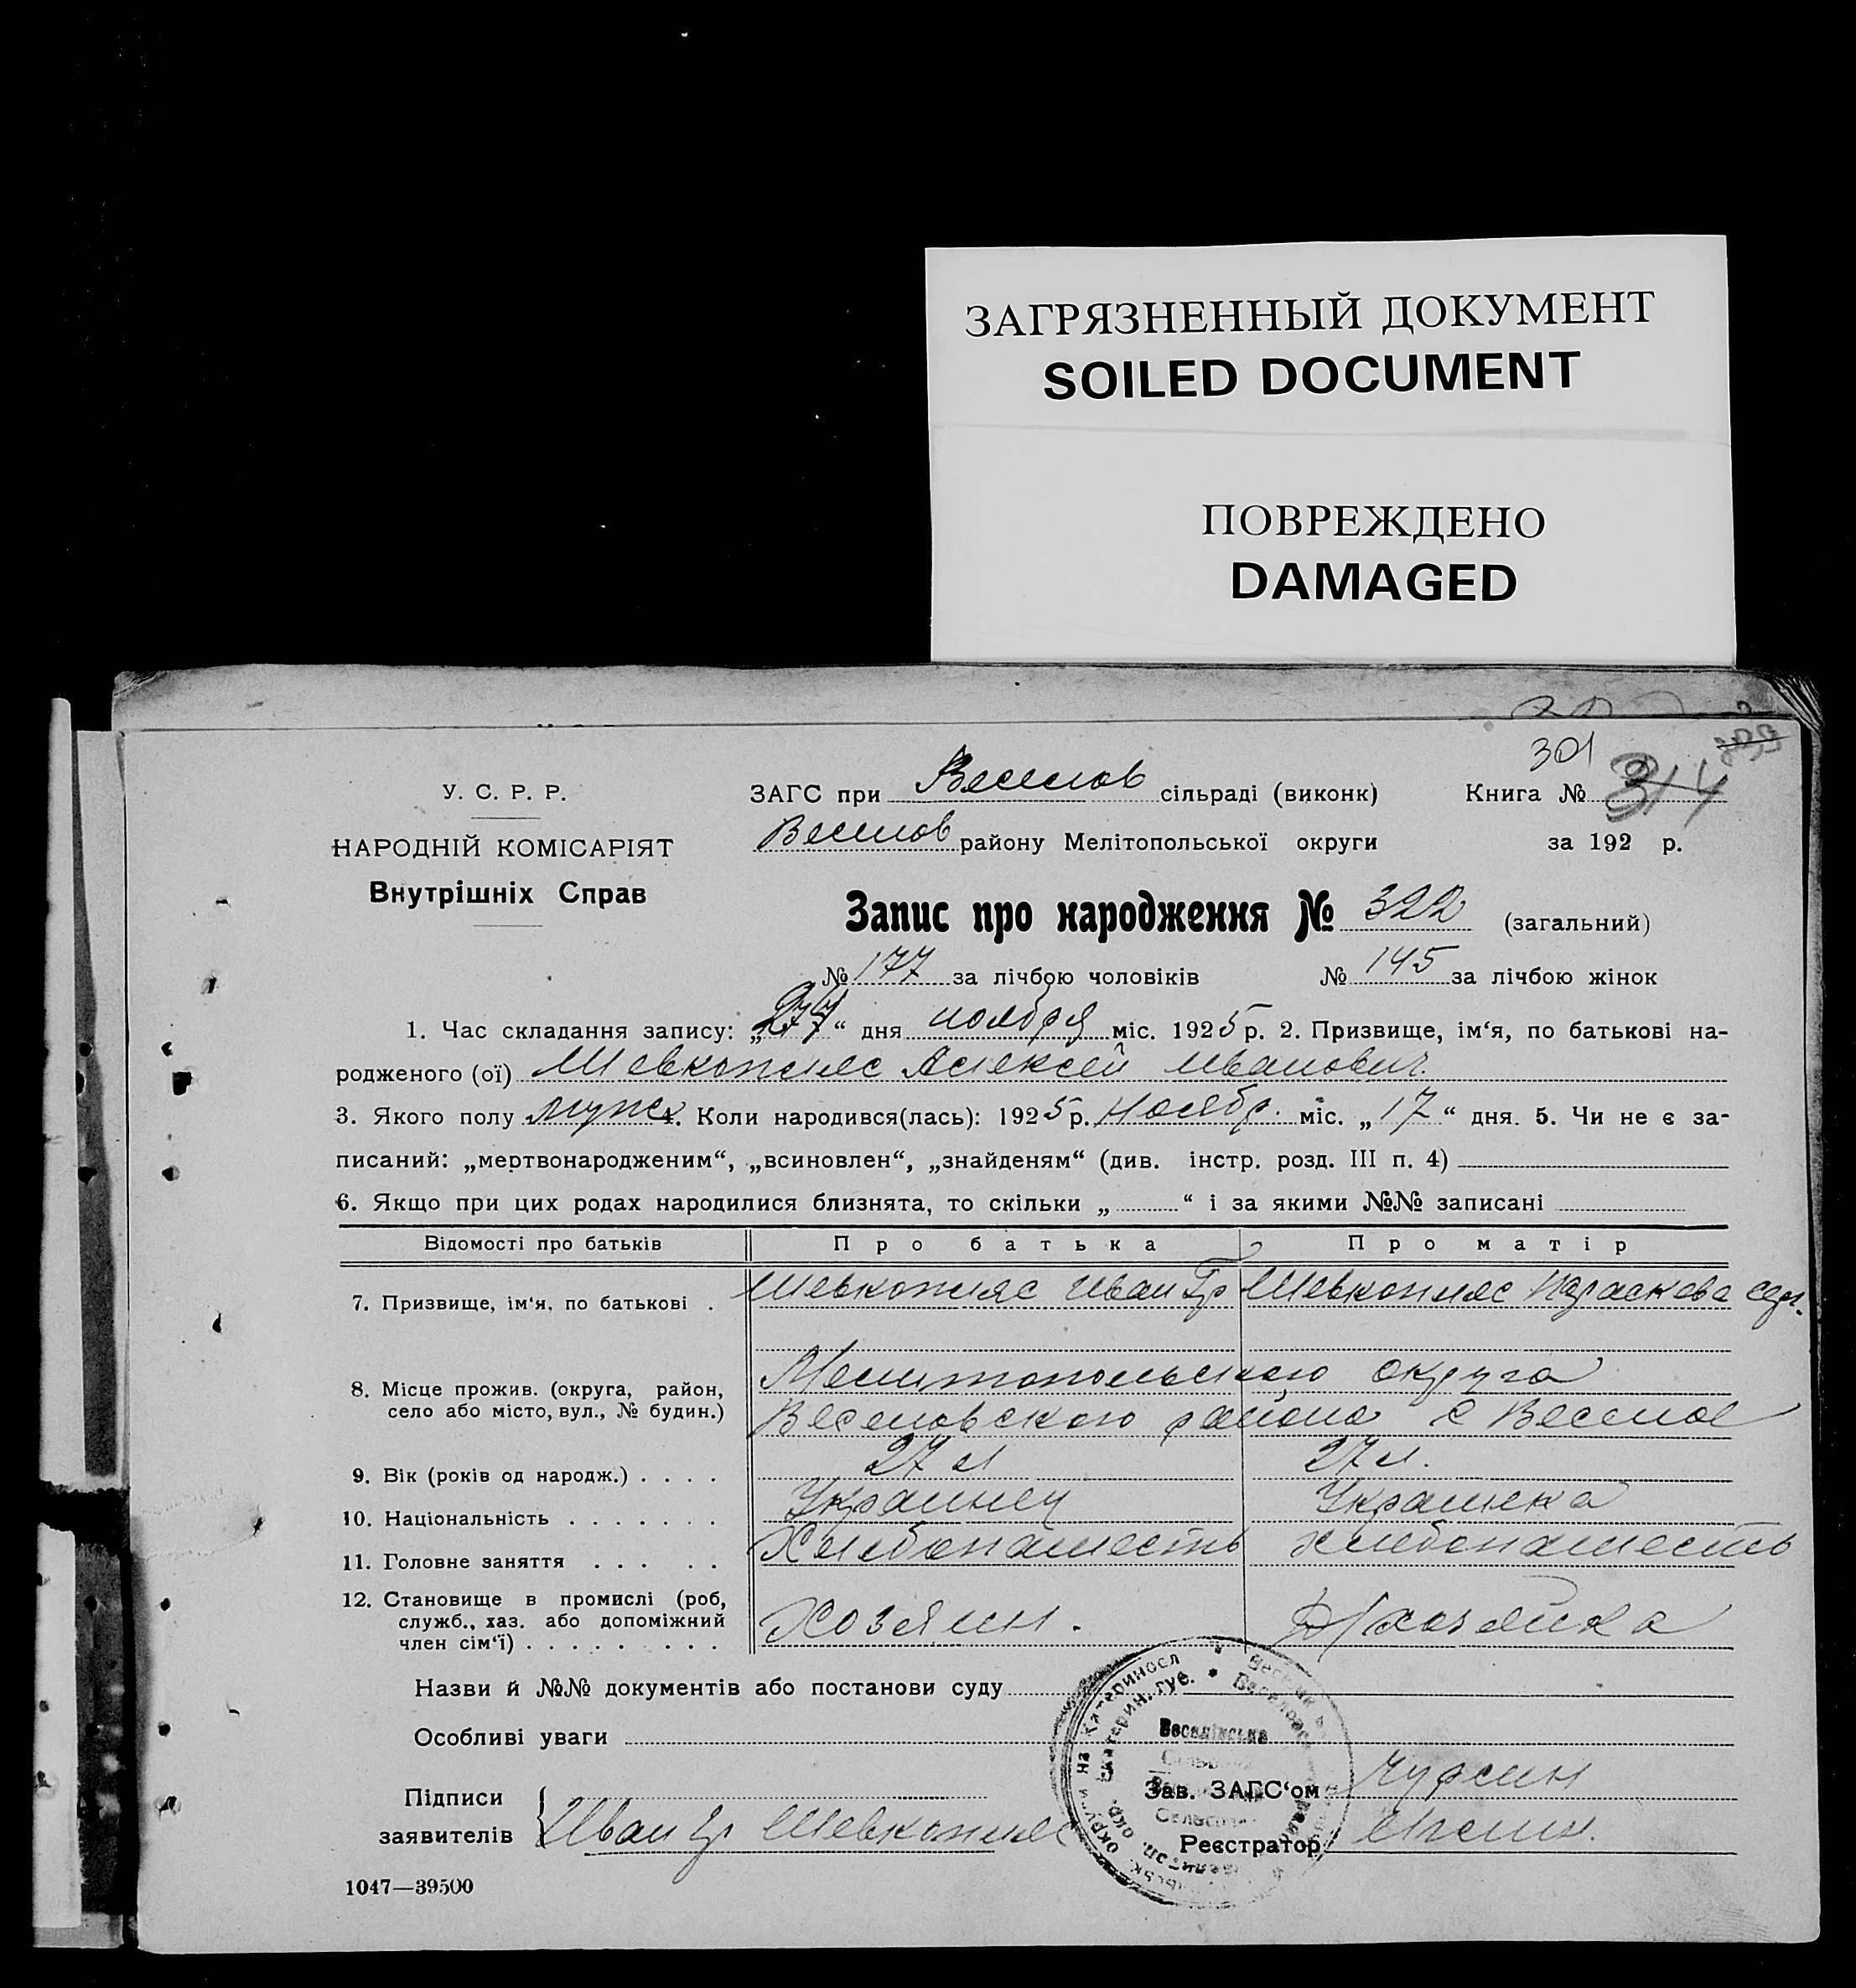 ЗАГРЯЗНЕННЫЙ ДОКУМЕНТ
SOILED DOCUMENT
ПОВРЕЖДЕНО
DAMAGED
301
У. С. Р. Р.
НАРОДНІЙ КОМІСАРІЯТ
Внутрішніх Справ
ЗАГС при Веселов сільраді (виконк)
Книга № 314
Веселов району Мелітопольської округи
за 192 р.
Запис про народження № 322 (загальний)
№ 177 за лічбою чоловіків № 145 за лічбою жінок
1. Час складання запису: „27“ дня ноября міс. 1925 р. 2. Призвище, ім‘я, по батькові на-
родженого (ої) Шевкопляс Алексей Иванович.
3. Якого полу мужс 4. Коли народився(лась): 1925 р. Ноябр. міс. „17“ дня. 5. Чи не є за-
писаний: „мертвонародженим“, „всиновлен“, „знайденям“ (див. інстр. розд. III п. 4)
6. Якщо при цих родах народилися близнята, то скільки „ “ і за якими №№ записані
Відомості про батьків Про батька Про матір
7. Призвище, ім‘я, по батькові . Шевкопляс Иван Гр Шевкопляс Параскева
8. Місце прожив. (округа, район,
село або місто, вул., № будин.)
Мелитопольского округа
Веселовского района с Веселое
9. Вік (років од народж.) . . . . 27 л 27 л.
10. Національність . . . . . . . Украинец Украинка
11. Головне заняття . . . . . Хлебопашесть хлебопашесть
12. Становище в промислі (роб,
служб., хаз. або допоміжний
член сім‘ї) . . . . . . . .
Хозяин. Дхозяйка
Назви й №№ документів або постанови суду
Особливі уваги
Підписи
заявителів
Иван Гр Шевкопляс
Зав. ЗАГС‘ом Чурсин
Реєстратор
1047—39500